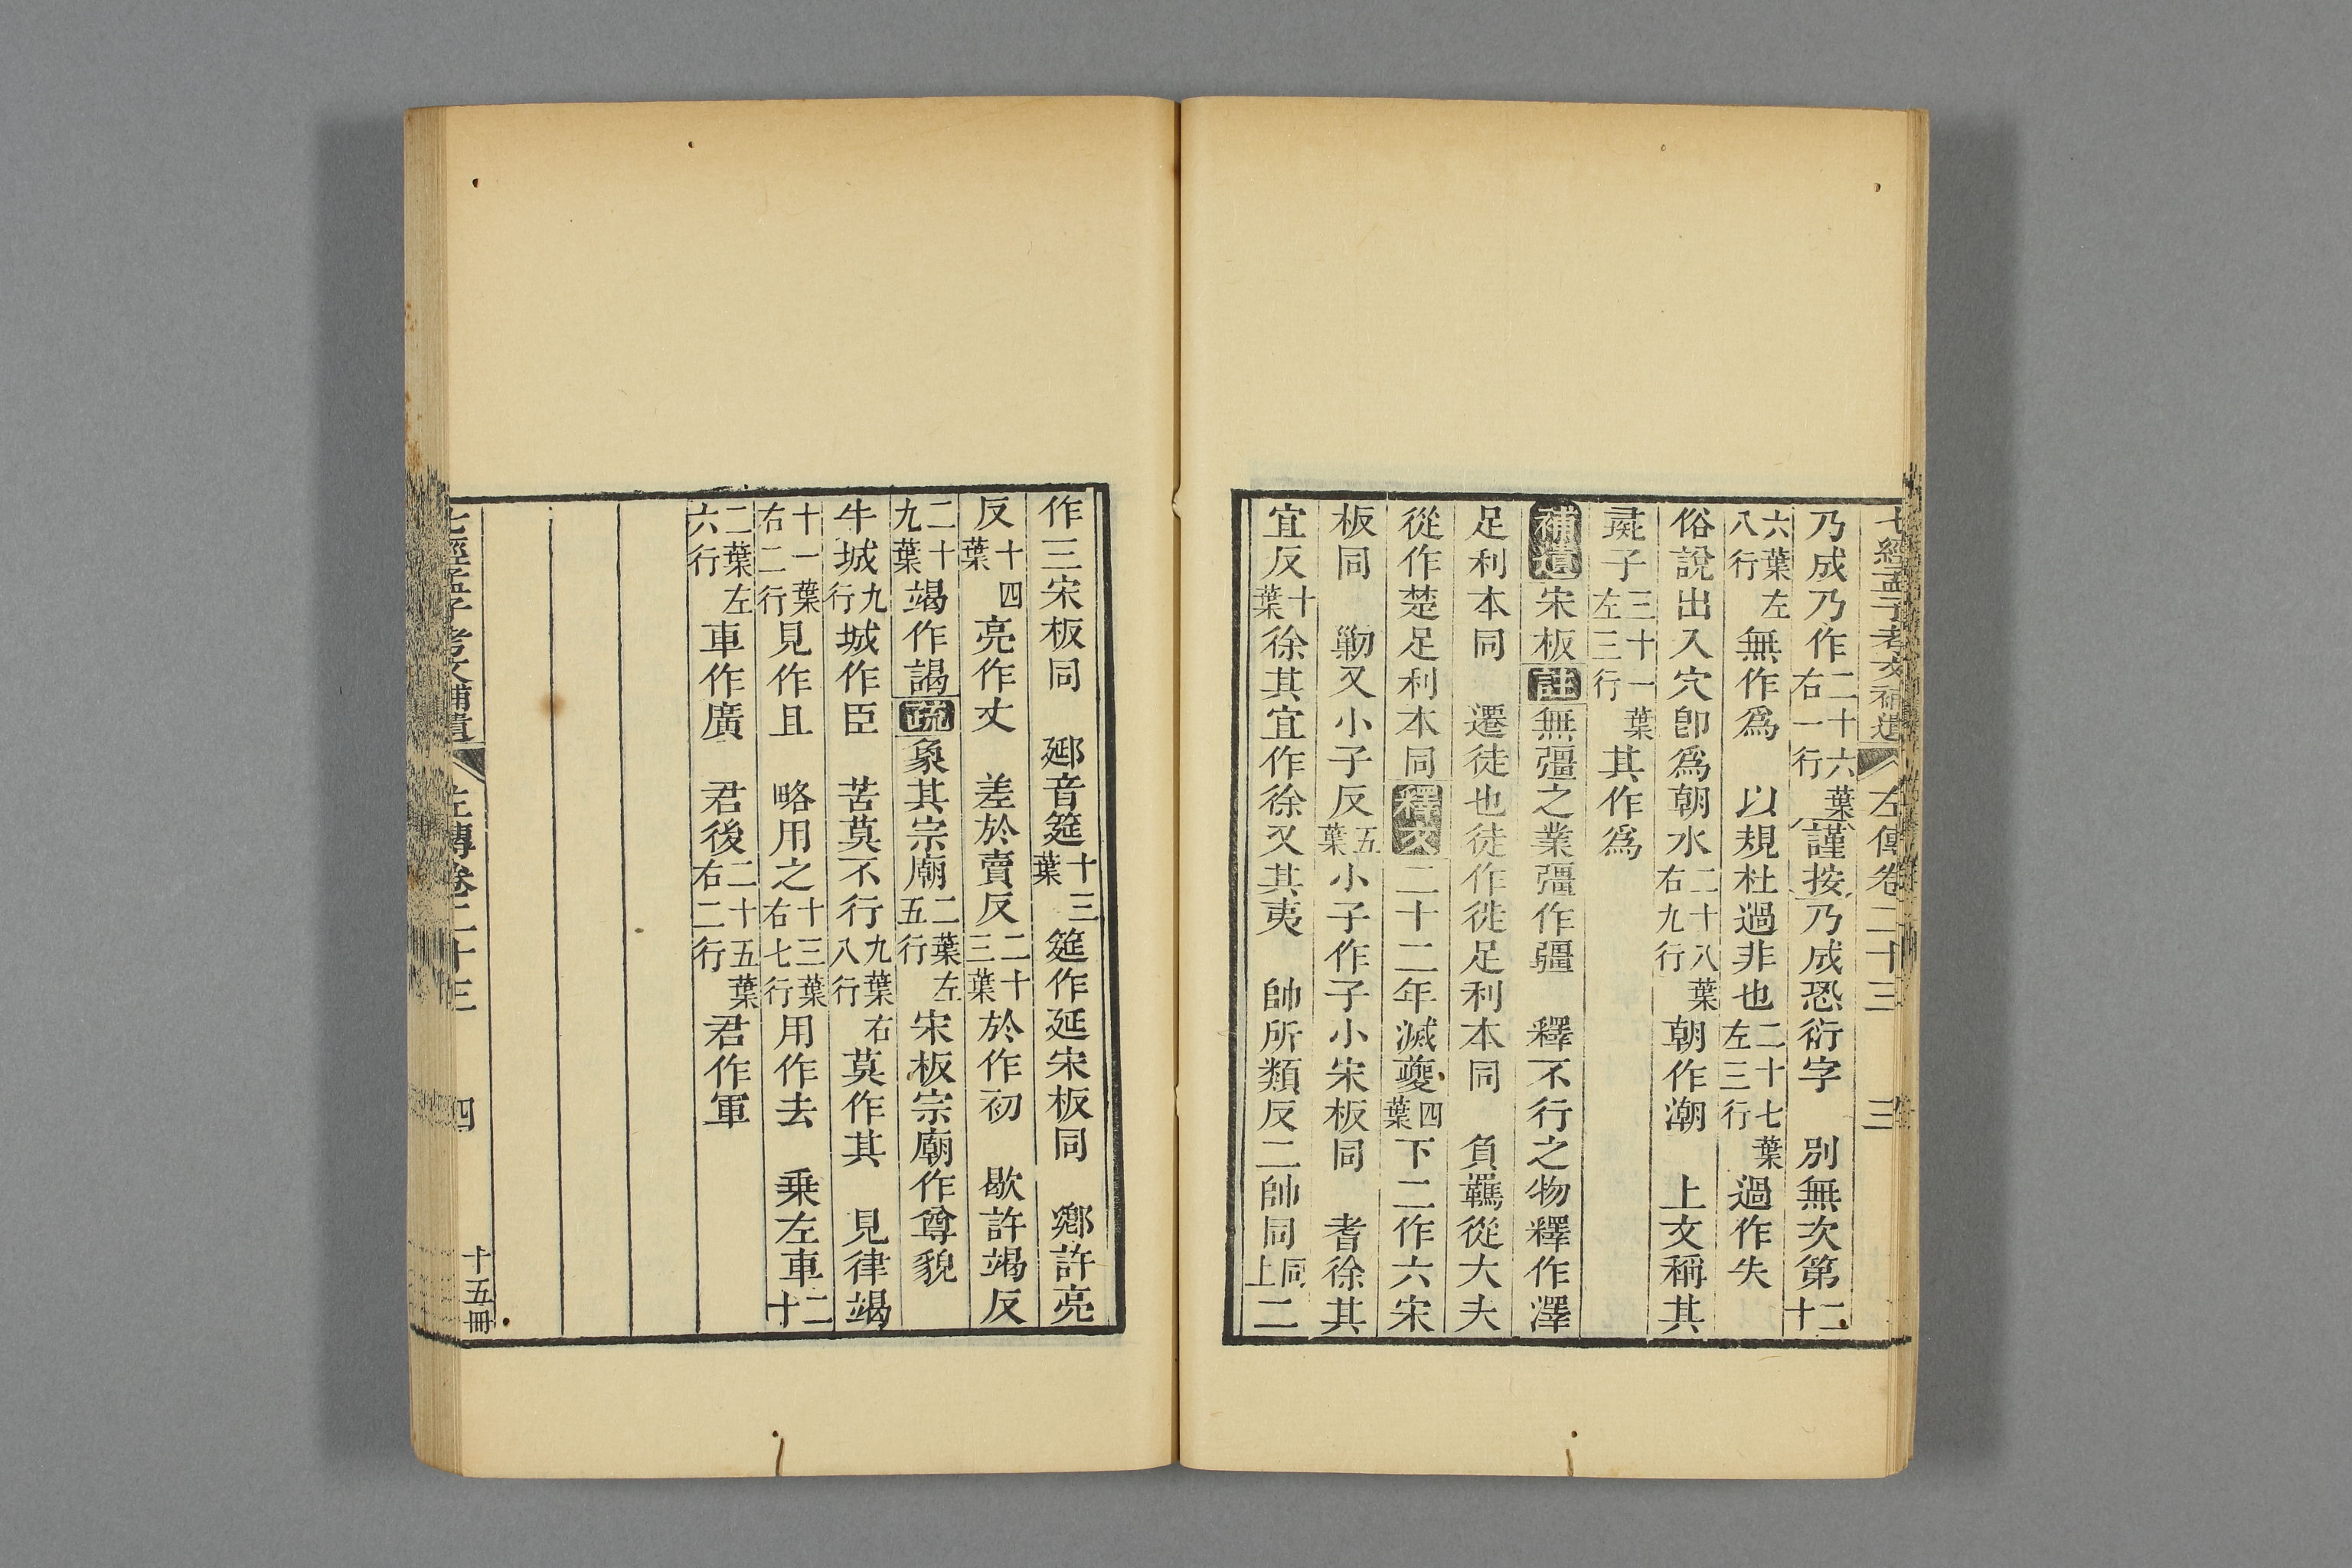 七經孟子考文補遺 左傳卷二十三 三
乃成乃作二十六葉右一行謹按乃成恐衍字 別無次第二十
六葉左八行無作爲 以規杜過非也二十七葉左三行過作失
俗說出入穴卽爲朝水二十八葉右九行朝作潮 上文稱其
彘子三十一葉左三行其作爲
補遺宋板註無彊之業彊作疆 釋不行之物釋作澤
足利本同 遷徒也徒作徙足利本同 負羈從大夫
從作楚足利本同釋文二十二年滅夔四葉下二作六宋
板同 勦又小子反五葉小子作子小宋板同 耆徐其
宜反十葉徐其宜作徐又其夷 帥所類反二帥同同上二
作三宋板同 郔音筵十三葉筵作延宋板同 鄉許亮
反十四葉亮作丈 差於賣反二十三葉於作初 歇許竭反
二十九葉竭作謁疏象其宗廟二葉左五行宋板宗廟作尊貌
牛城九行城作臣 苦莫不行九葉右八行莫作其 見律竭
十一葉右二行見作且 略用之十三葉右七行用作去 乗左車二十
二葉左六行車作廣 君後二十五葉右二行君作軍
七經孟子考文補遺 左傳卷二十三 四 十五冊